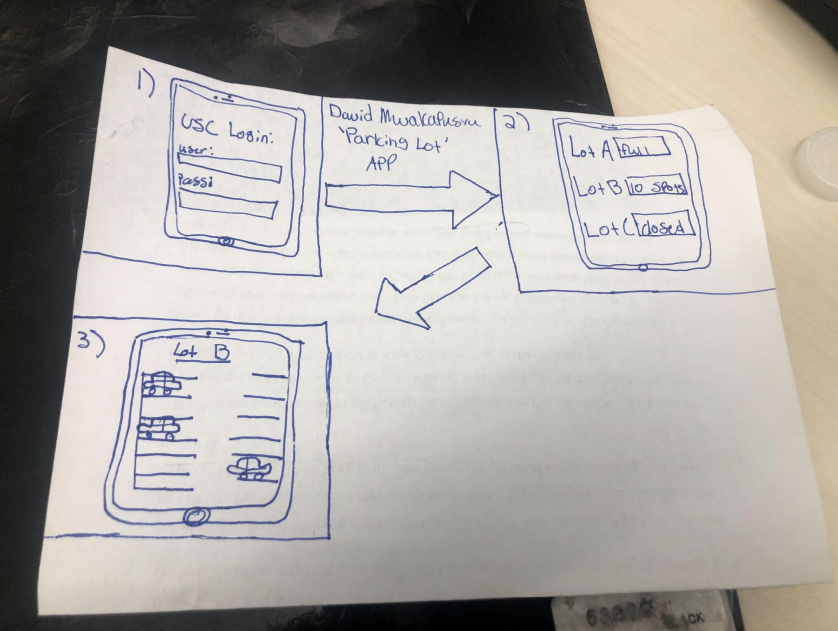 1)
USC Login:
user:
Pass:
David
'Parking Lot'
APP
2)
Lot A full
Lot B 10 spots
Lot C closed
3)
Lot B
OK